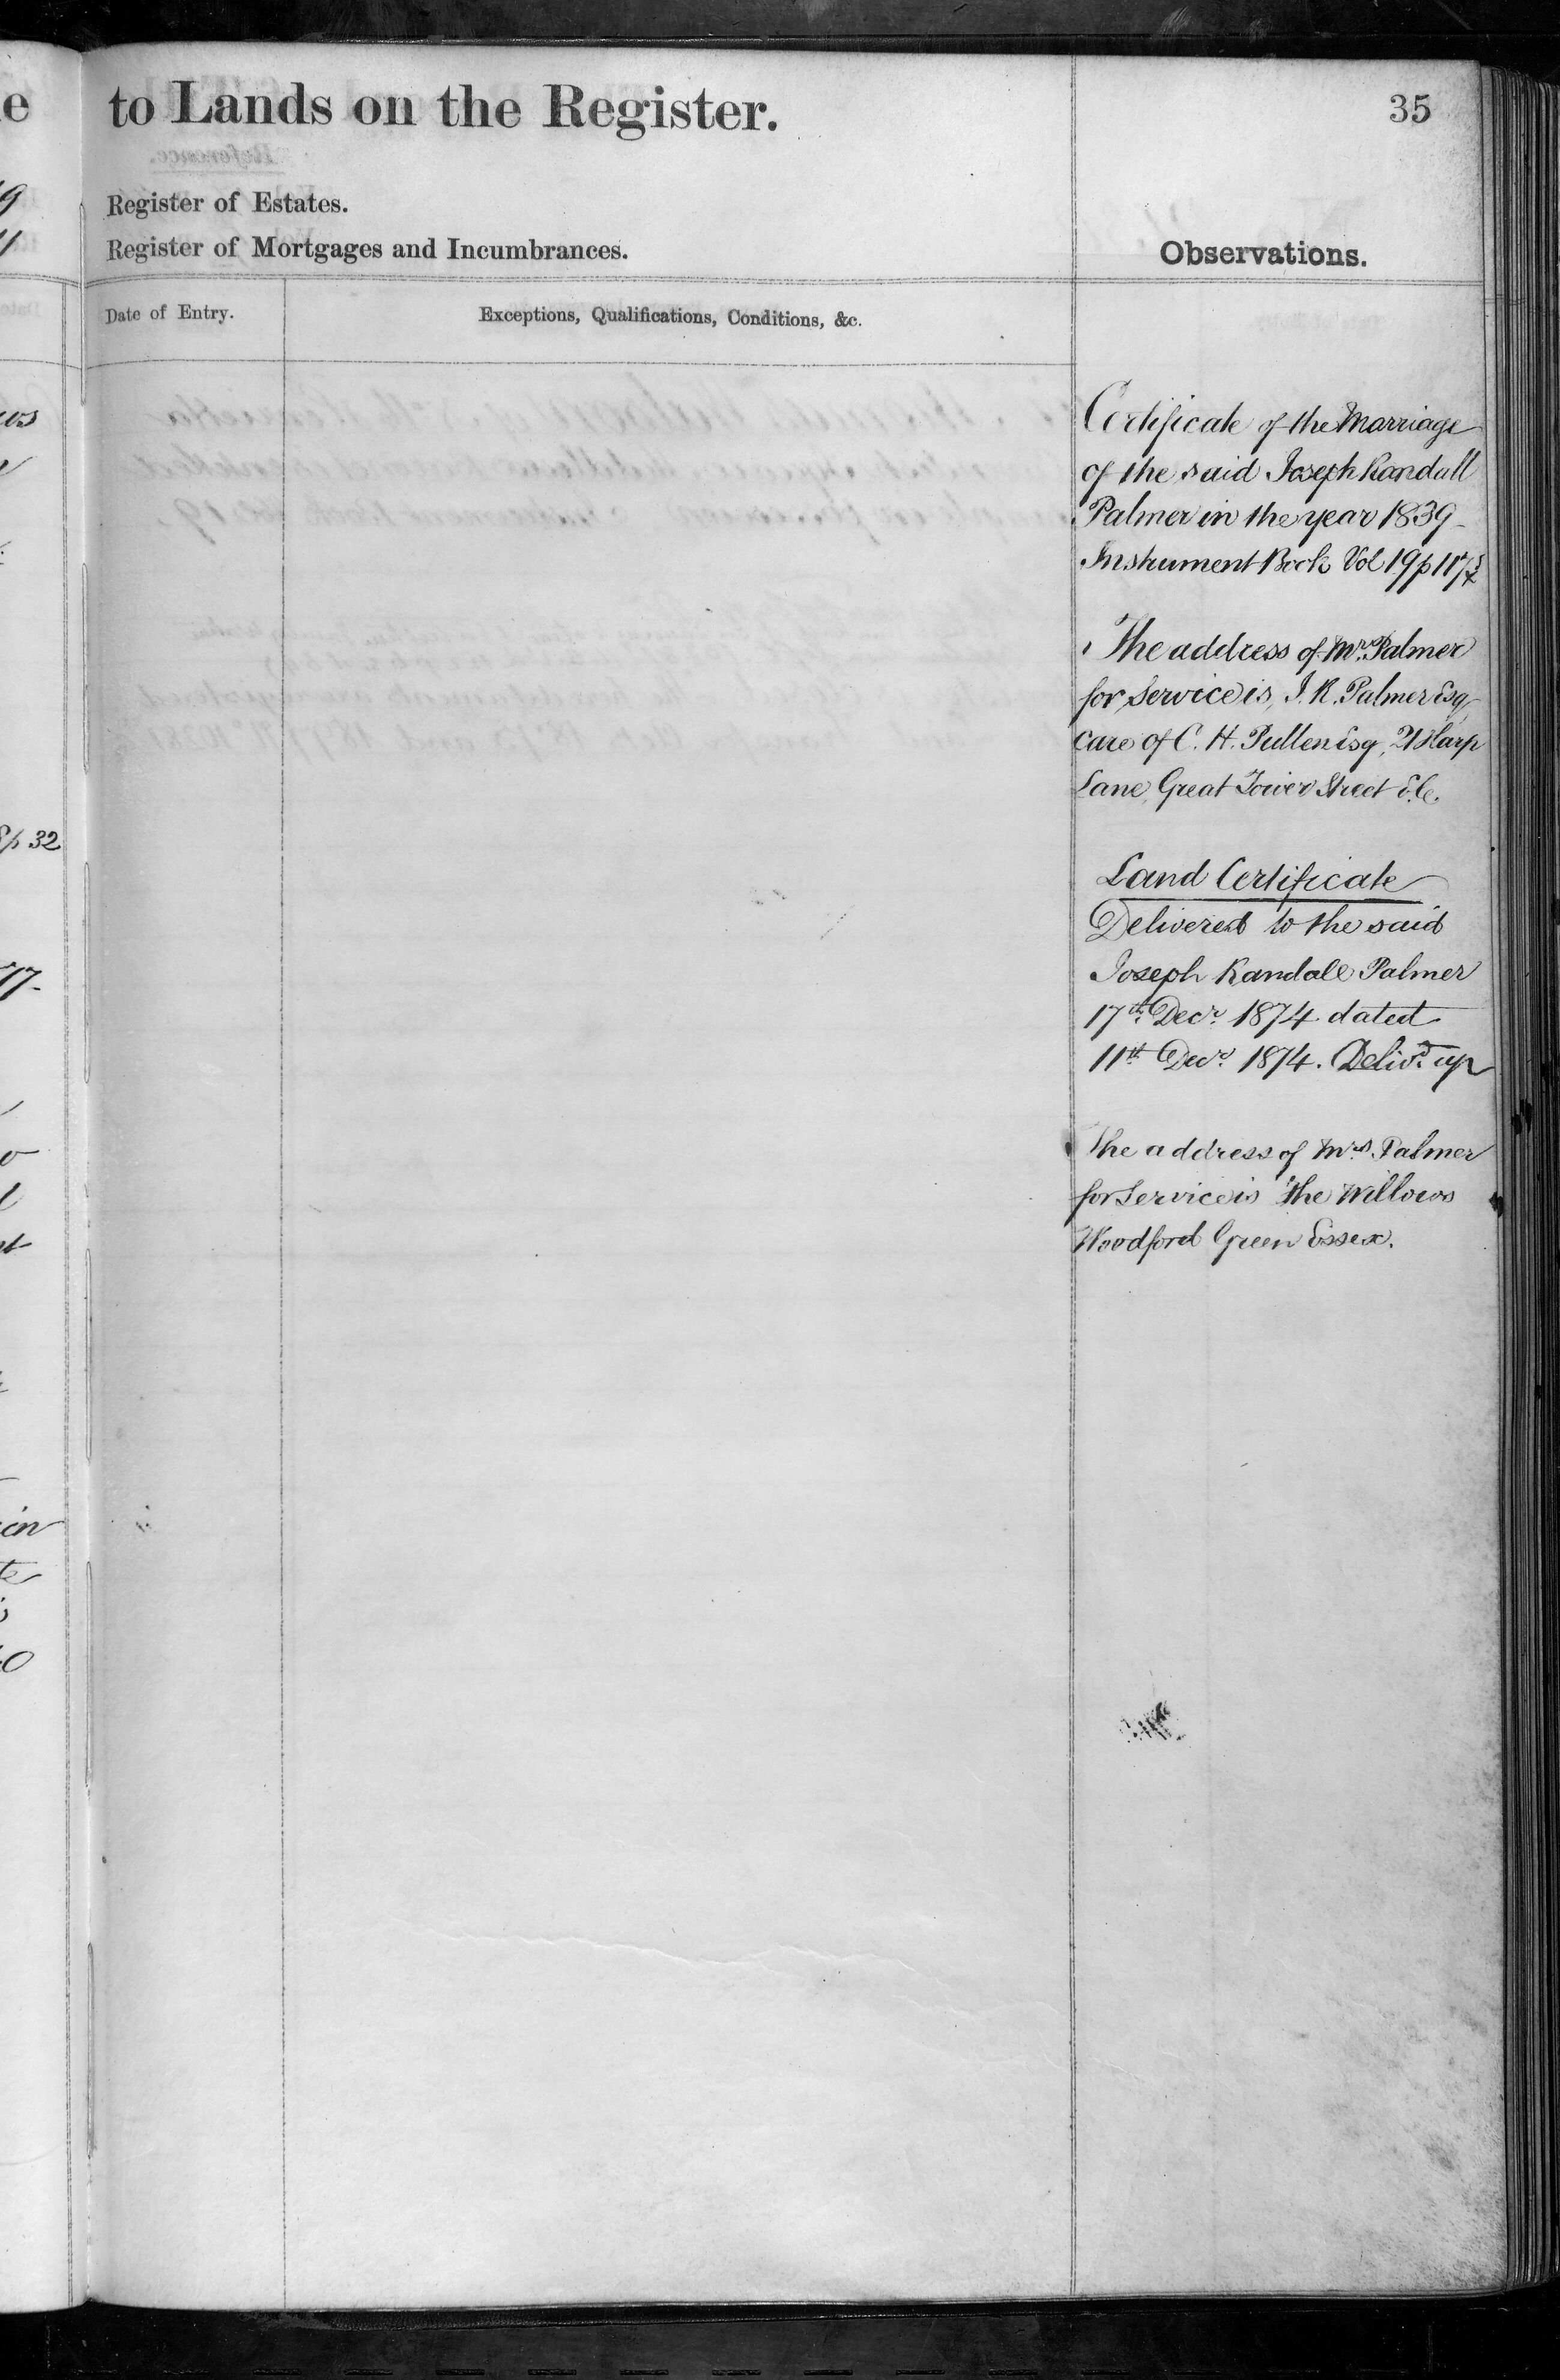 to Lands on the Register.
35
Register of Estates.
Register of Mortgages and Incumbrances.
Observations.
Date of Entry.
Exceptions, Qualifications, Conditions, &c.
Certificate of the Marriage
of the said Joseph Randall
Palmer in the year 1839-
Instrument Book Vol 19 p 117
The address of Mr. Palmer
for Service is, J. R. Palmer Esq
care of C. H. Pullen Esq, 21 Harp
Lane, Great Tower Street E.C.
Land Certificate
Delivered to the said
Joseph Randall Palmer
17th Decr. 1874 dated
11th Decr. 1874. Delivd. up
The address of Mrs. Palmer
for Service is The Willows
Woodford Green Essex.
p 32